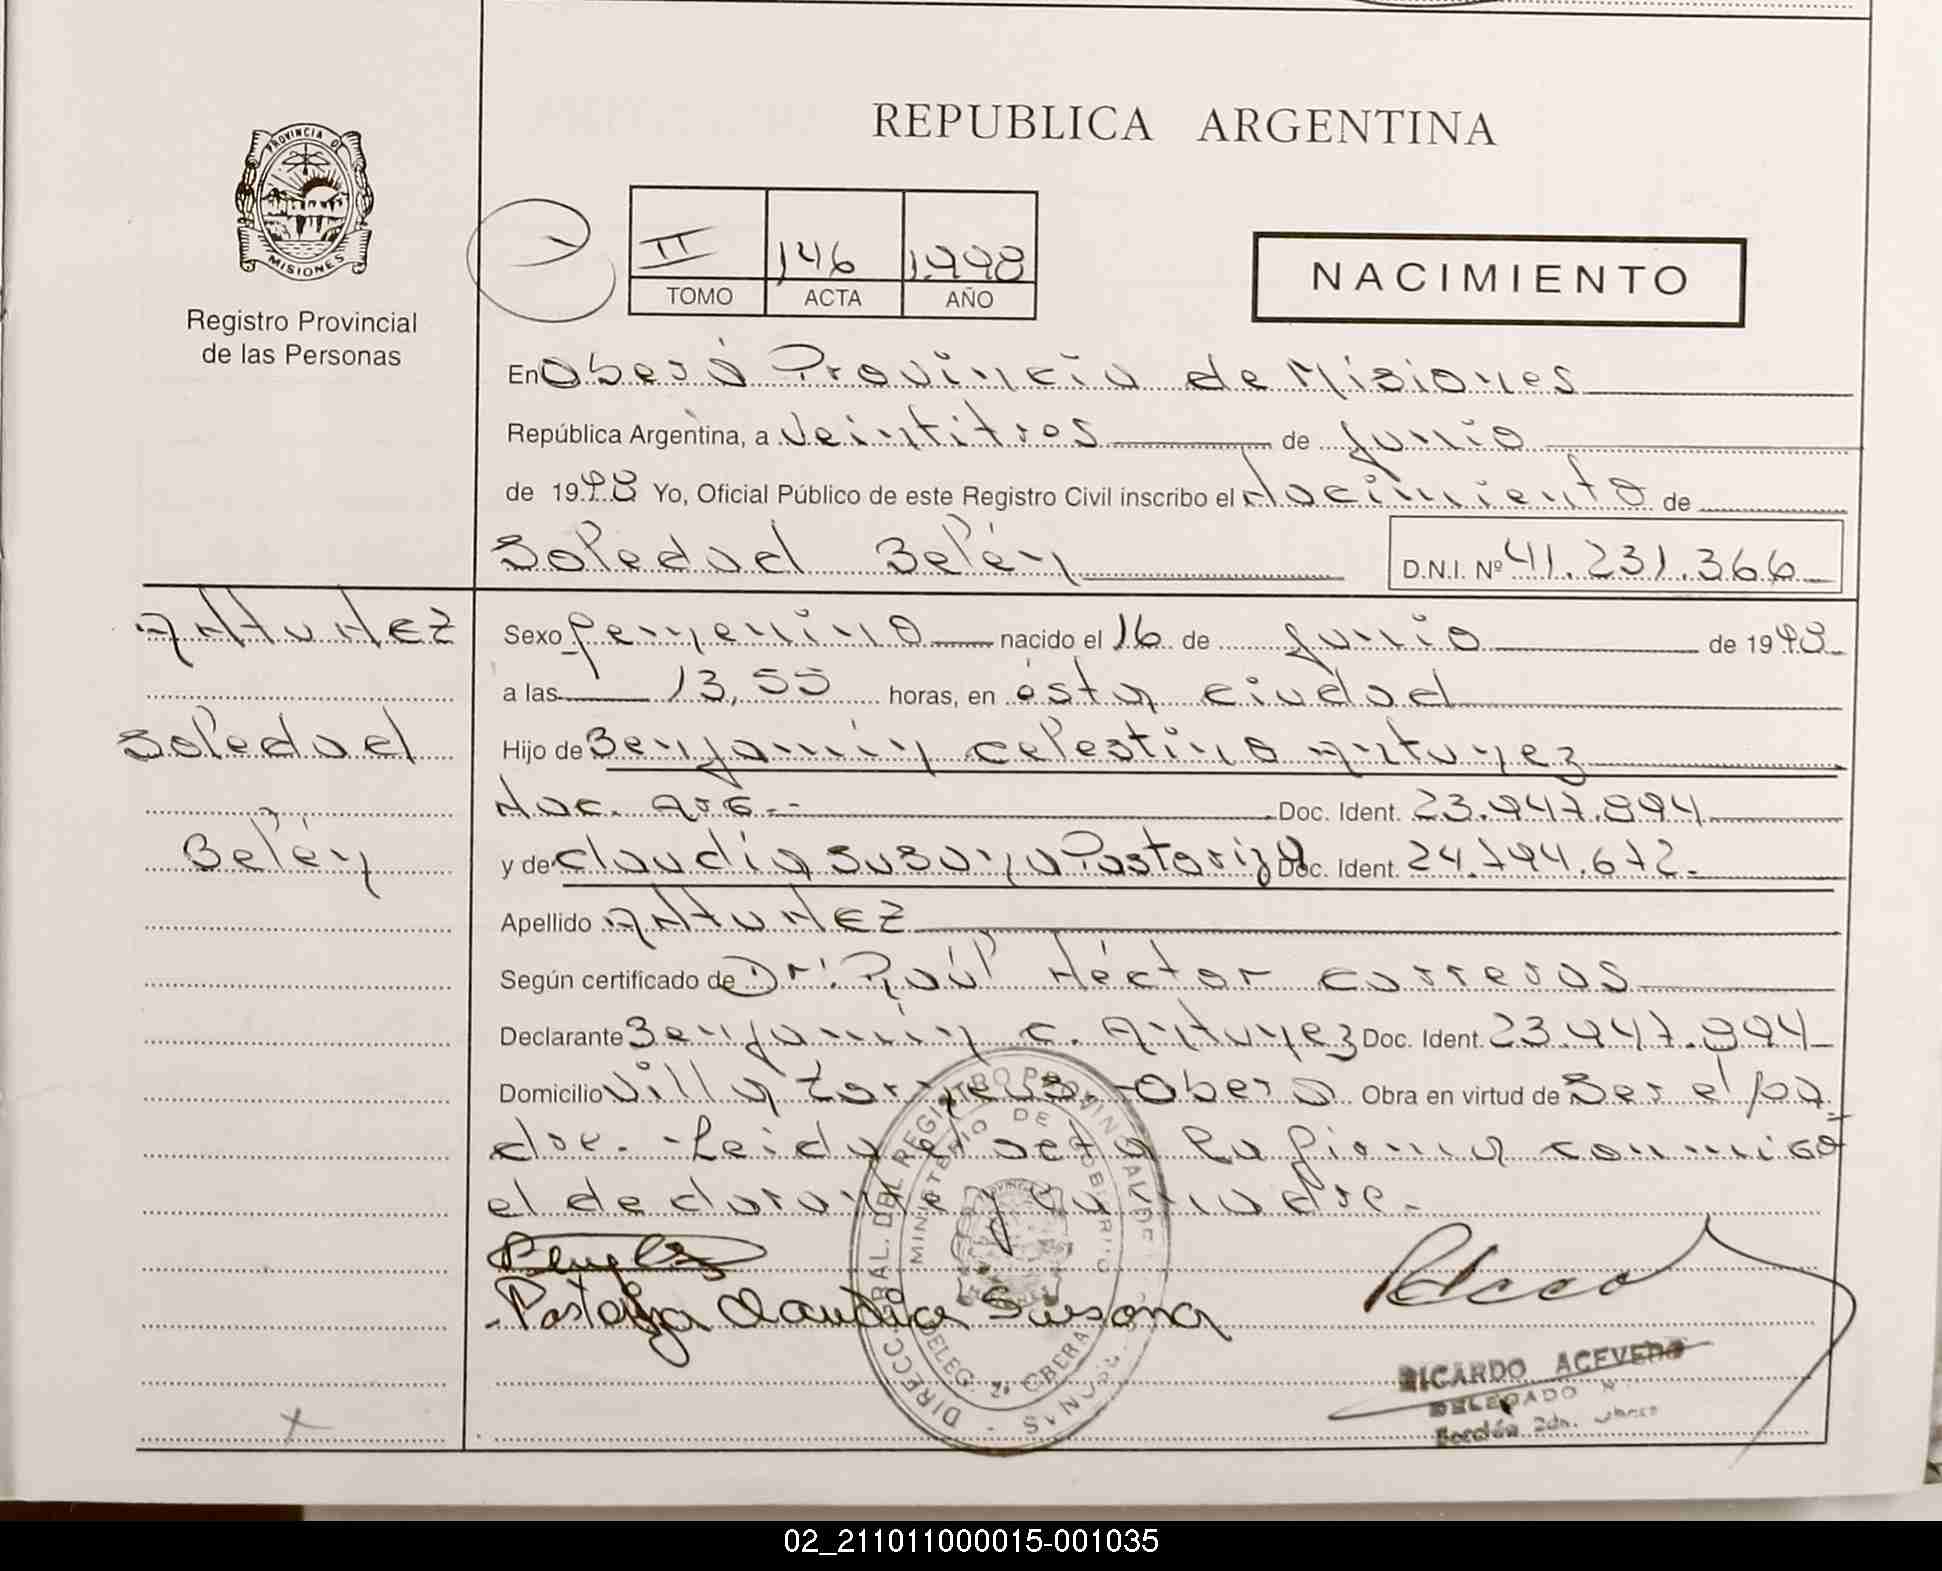 REPUBLICA ARGENTINA
PROVINCIA DE
MISIONES
Registro Provincial
de las Personas
II 146 1998
TOMO ACTA AÑO
NACIMIENTO
En Oberá Provincia de Misiones
República Argentina, a veintitres de junio
de 1998 Yo, Oficial Público de este Registro Civil inscribo el Nacimiento de
Soledad Belén D.N.I. Nº 41.231.366
ANTUNEZ
Soledad
Belén
Sexo femenino nacido el 16 de junio de 1998
a las 13,55 horas, en ésta ciudad
Hijo de Benjamín Celestino Antunez
Nac. Arg.- Doc. Ident. 23.947.894
y de Claudia Susana Pastoriza Doc. Ident. 24.794.672.
Apellido ANTUNEZ
Según certificado de Dr: Raúl Héctor Carreras
Declarante Benjamín C. Antunez Doc. Ident. 23.947.894
Domicilio Villa -Oberá Obra en virtud de ser el pa-
dre.- Leida el acta la firma conmigo
el declarante y la madre.-
Pastoriza Claudia Susana
DIRECC. GRAL. DEL REGISTRO PROVINCIAL DE PERSONAS
MINISTERIO DE GOBIERNO
DELEG. 2ª OBERA
RICARDO ACEVEDO
DELEGADO
Sección 2da. Oberá
02_211011000015-001035